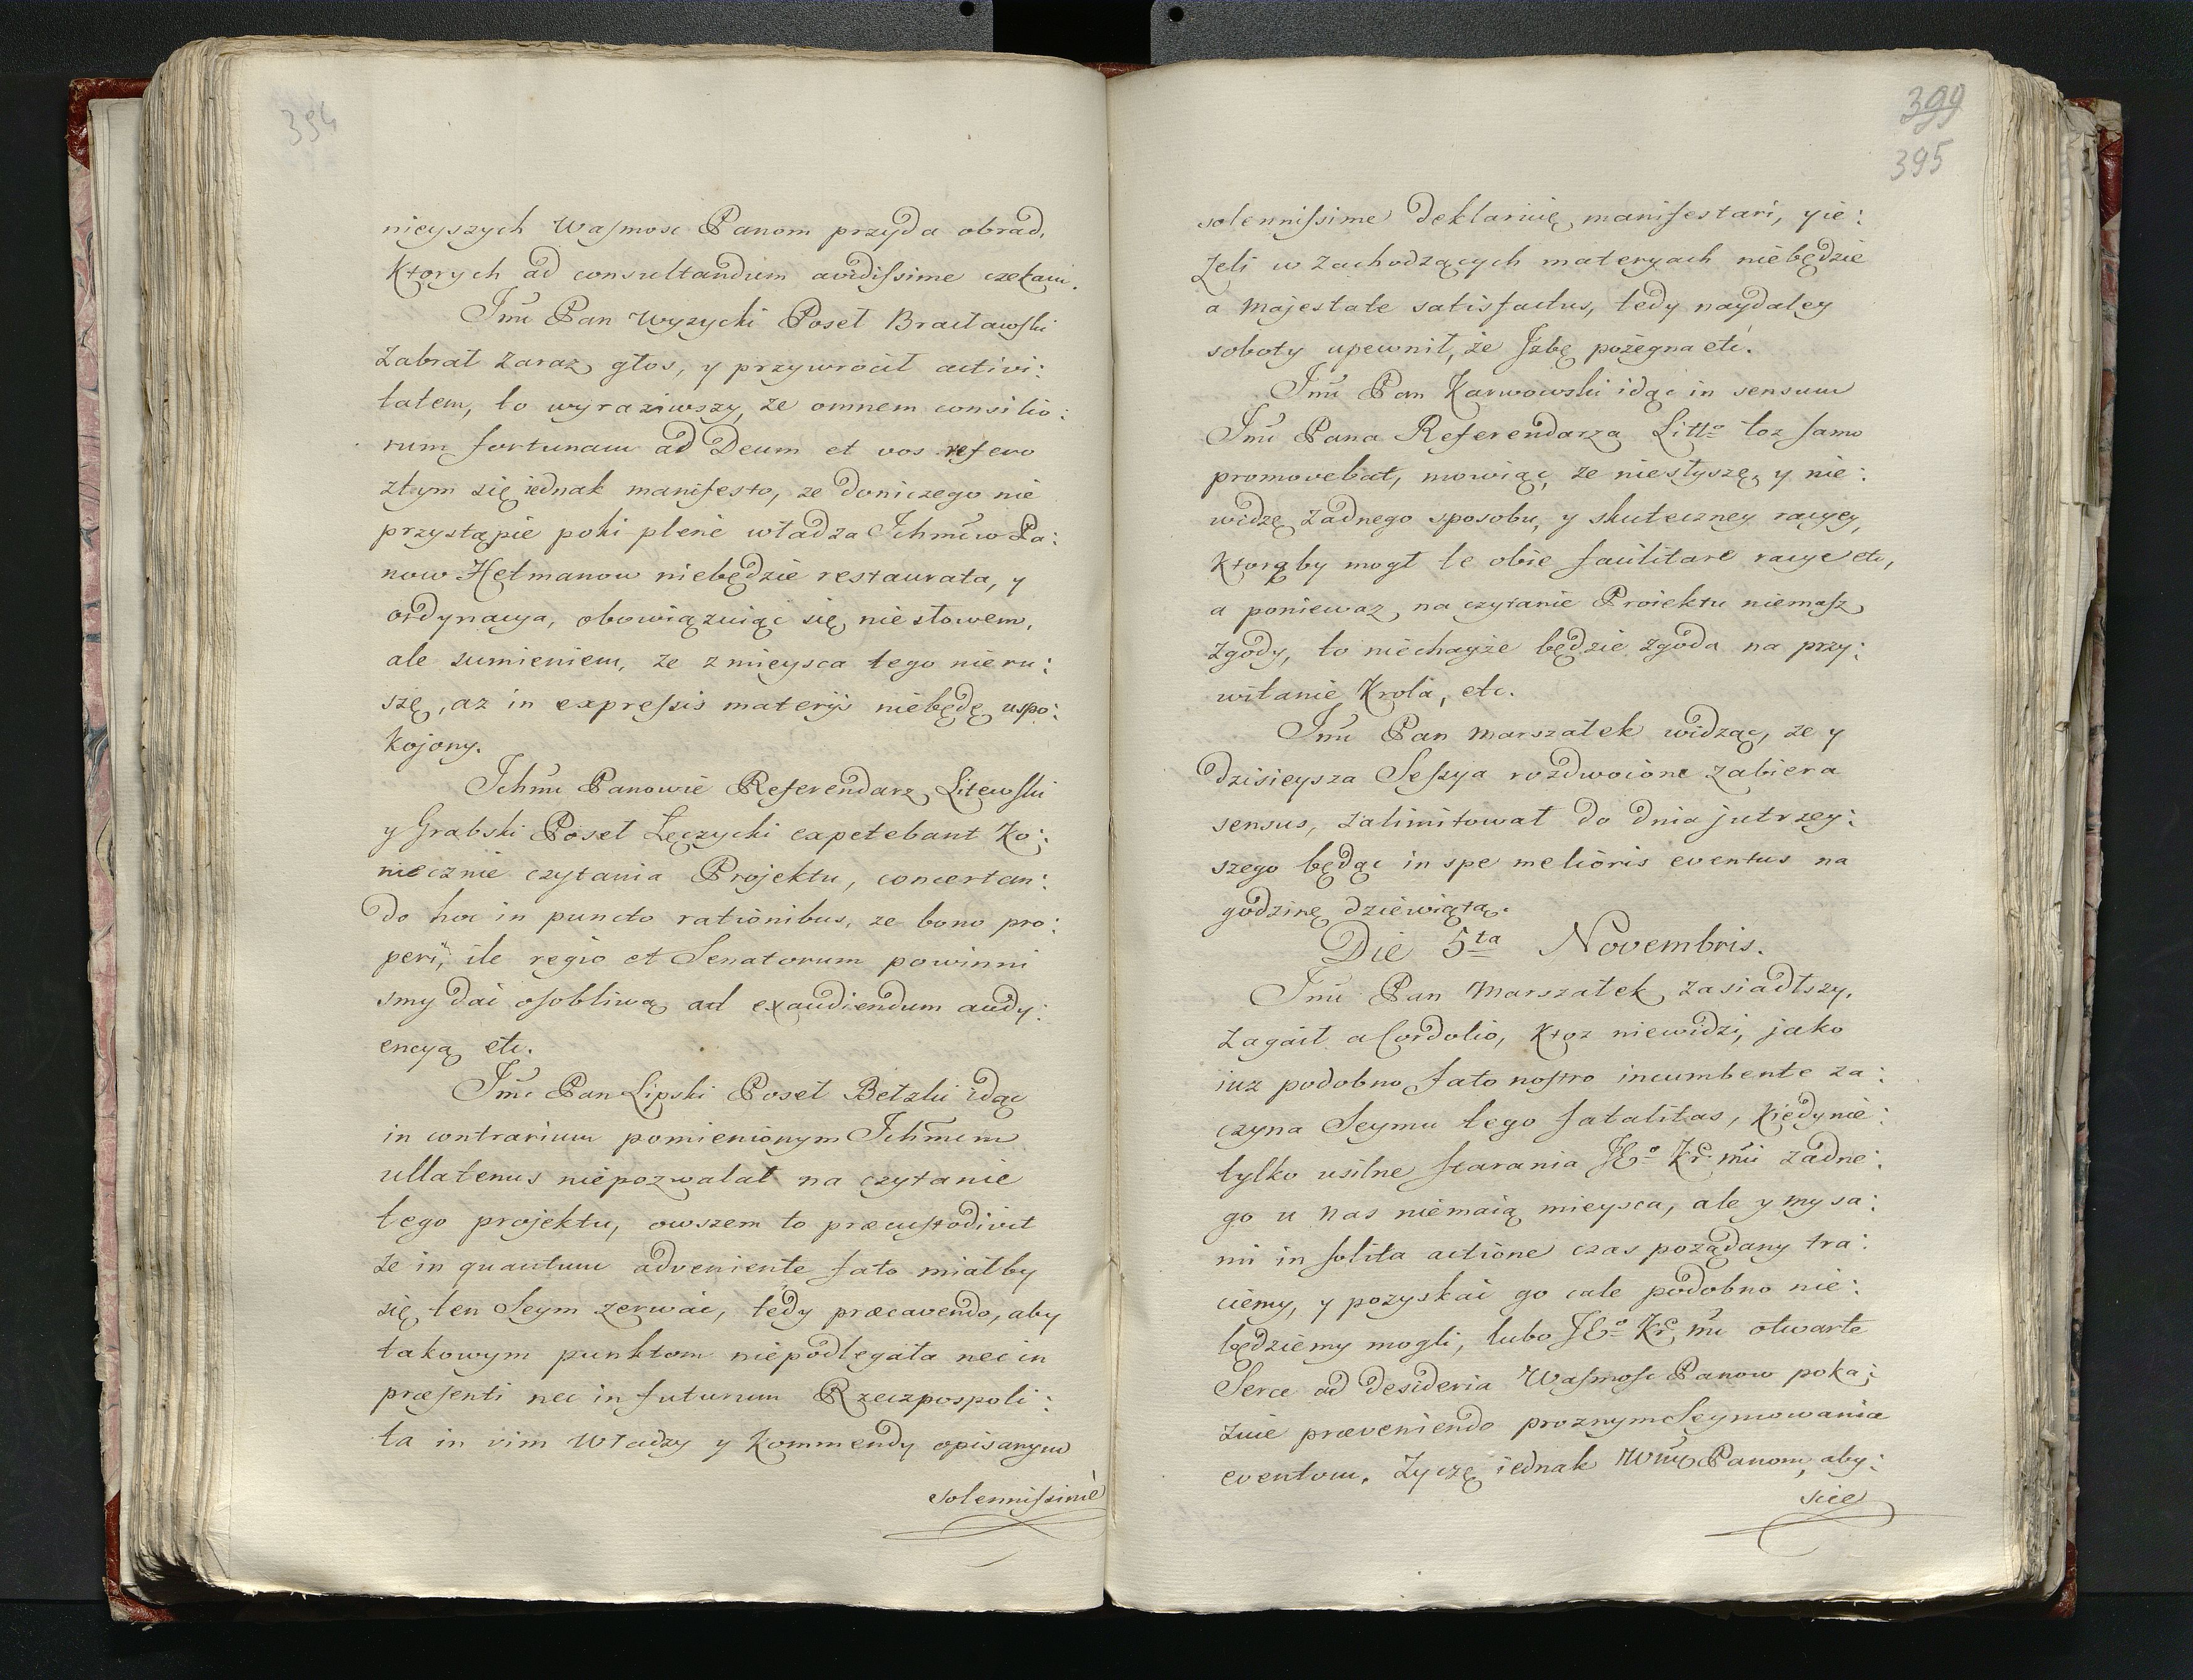 394
nieyszych Waſmosc Panom przyda obrad,
Ktorych ad consultandum avidiſsime czekam.
Jmć Pan Wyzycki Poseł Bracławſki
Zabrał zaraz głos, y przywrocił activi:
tatem, to wyraziwszy, ze omnem consilio:
rum fortunam ad Deum et vos refero
ztym się iednak manifesto, ze doniczego nie
przystąpie poki plene władza Ichmciow Pa:
now Hetmanow niebędzie restaurata, y
ordynacya, obowiązuiąc się nie słowem,
ale sumieniem, ze z mieysca tego nieru:
szę, az in expreſsis materijs niebędę uspo:
kojony.
Ichmć Panowie Referendarz Litewſki
y Grabski Poseł Lęczycki expetebant Ko:
niecznie czytania Projektu, concertan:
do hoc in puncto rationibus, ze bono pro:
peri, ile regio et Senatorum powinni
smy dać osobliwą ad exaudiendum audy:
encyą etc.
Jmć Pan Lipski Poseł Bełzki idąc
in contrarium pomienionym Ichmcm
ullatenus niepozwalał na czytanie
tego projektu, owszem to præcuſtodivit
ze in quantum adveniente fato miałby
się ten Seym zerwać, tedy præcavendo, aby
takowym punktom niepodlegała nec in
præſenti nec in futurum Rzeczpospoli:
ta in vim Władzy y Kommendy opisanym
solenniſsimè
399
395
solenniſsime deklaruię manifestari, y ie:
zeli w zachodzących materyach niebędzie
a Majestate satisfactus, tedy naydaley
soboty upewnił, że Jzbę pożegna etc.
Jmć Pan Karwowski idąc in sensum
Jmć Pana Referendarza Litto toz samo
promovebat, mowiąc, ze niesłyszę, y nie:
widzę zadnego sposobu, y skuteczney racyey,
ktorąby mogł te obie facilitare racye etc,
a poniewaz na czytanie Proiektu niemasz
zgody, to niechayże będzie zgoda na przy:
witanie Krola, etc.
Jmć Pan Marszałek widząc, ze y
dzisieysza Seſsya rozdwoione zabiera
sensus, zalimitował do dnia jutrzey:
szego będąc in spe melioris eventus na
godzinę dziewiątą.
Die 5ta Novembris.
Jmć Pan Marszałek zasiadłszy,
zagaił a Cordolio, Ktoz niewidzi, jako
iuz podobno fato noſtro incumbente za:
czyna Seymu tego fatalitas, kiedy nie:
tylko usilne ſtarania JEo Kr: mći zadne:
go u nas niemaią mieysca, ale y my sa:
mi in ſolita actione czas poządany tra:
ciemy, y pozyskać go cale podobno nie:
będziemy mogli, lubo JEo Kr: mć otwarte
Serce ad desideria Waſmosc Panow poka:
zuie præveniendo proznym Seymowania
eventom. Zyczę iednak WM Panom, aby:
scie